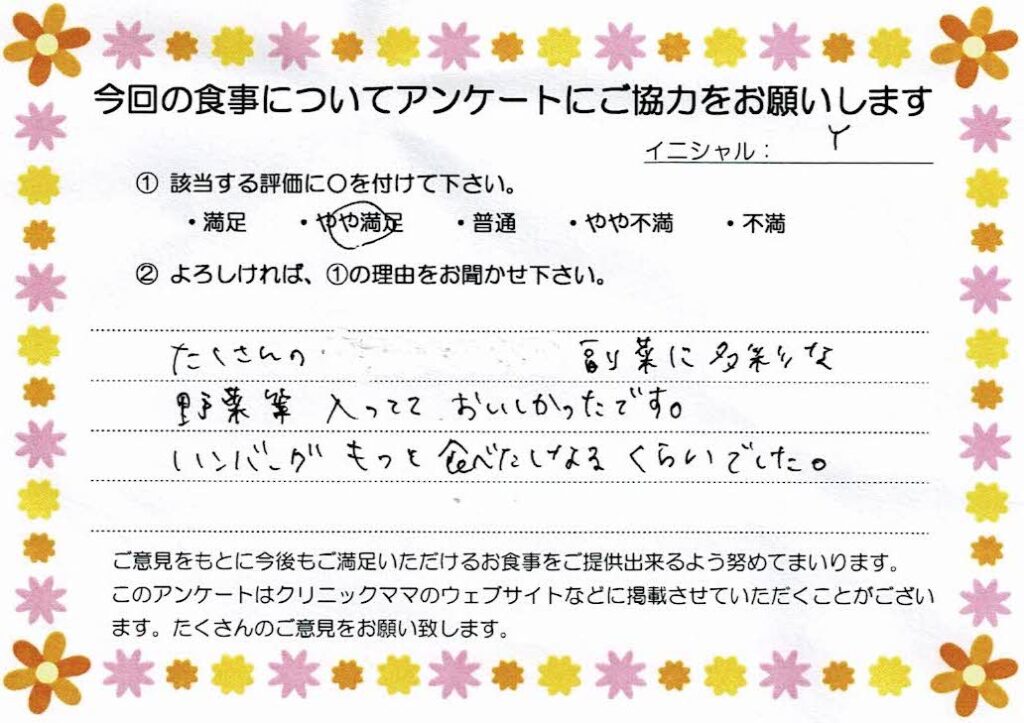 今回の食事についてアンケートにご協力をお願いします
イニシャル： Y
① 該当する評価に〇を付けて下さい。
・満足 ・やや満足 ・普通 ・やや不満 ・不満
② よろしければ、①の理由をお聞かせ下さい。
たくさんの 副菜に多彩な
野菜等 入ってて おいしかったです。
ハンバーグ もっと 食べたくなる くらいでした。
ご意見をもとに今後もご満足いただけるお食事をご提供出来るよう努めてまいります。
このアンケートはクリニックママのウェブサイトなどに掲載させていただくことがござい
ます。たくさんのご意見をお願い致します。